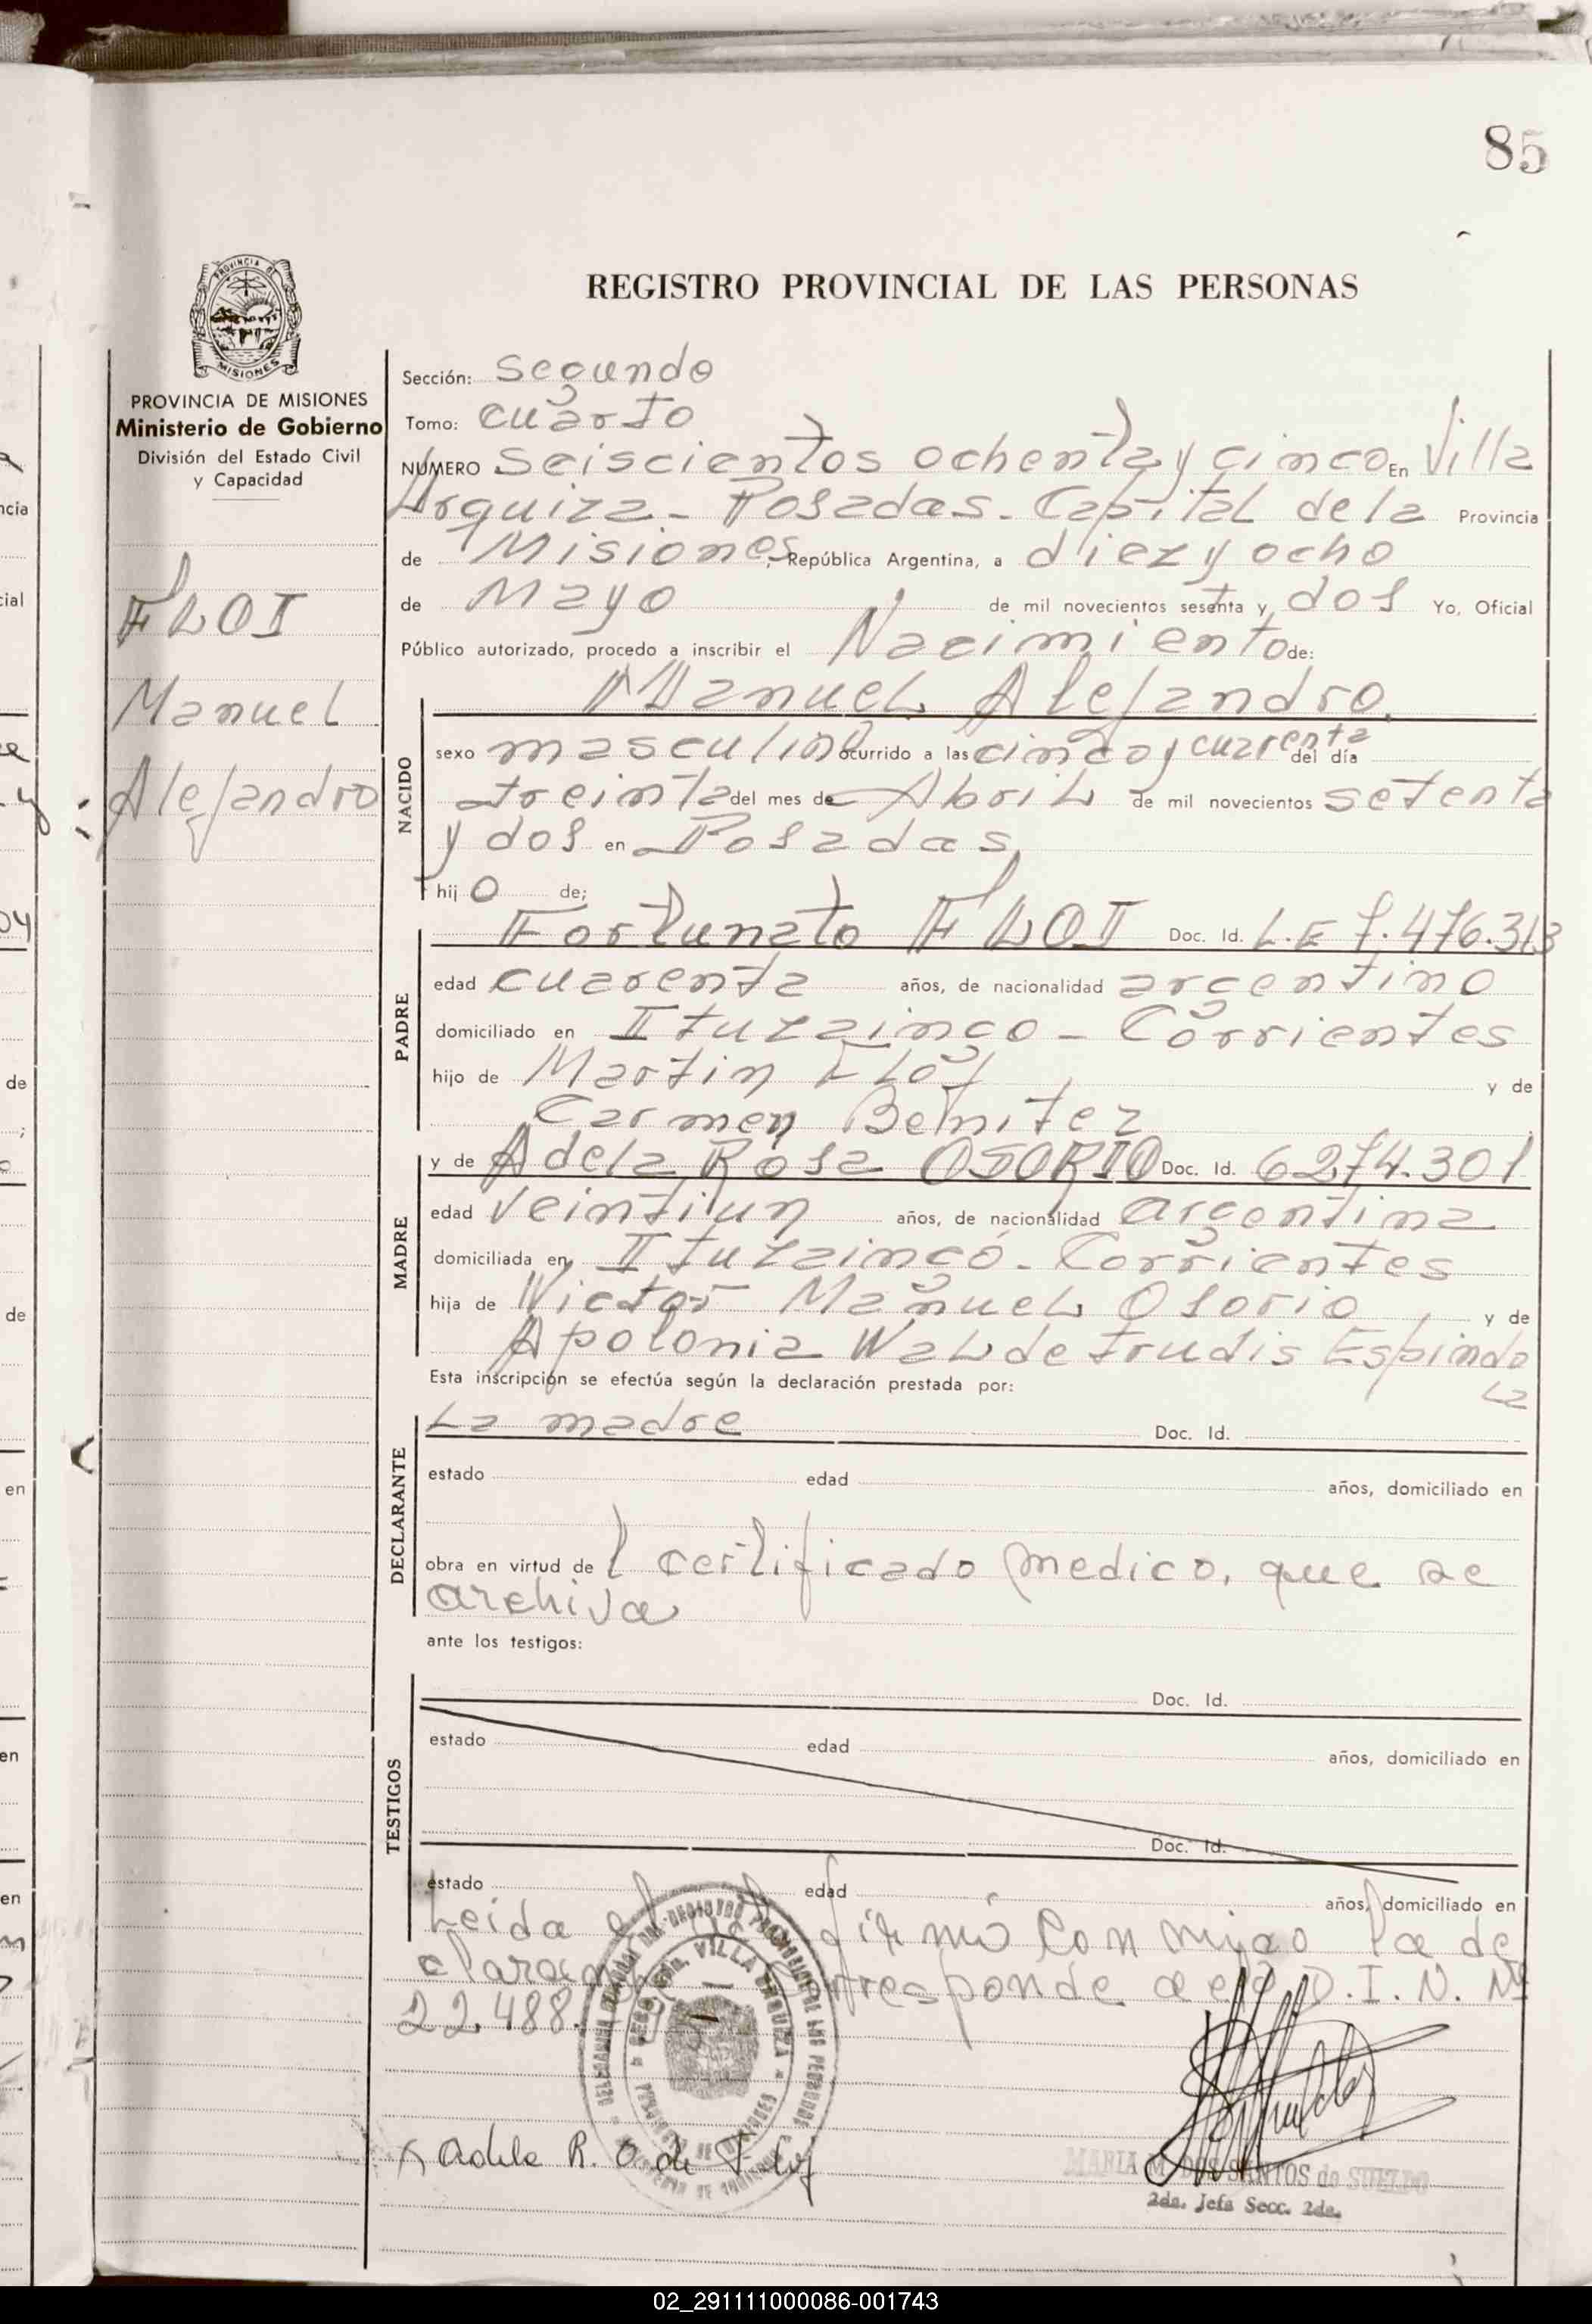 85
REGISTRO PROVINCIAL DE LAS PERSONAS
PROVINCIA DE MISIONES
Ministerio de Gobierno
División del Estado Civil
y Capacidad
FLOI
Manuel
Alejandro
Sección: Segundo
Tomo: cuarto
NUMERO Seiscientos ochenta y cinco En Villa
Urquiza - Posadas - Capital de la Provincia
de Misiones, República Argentina, a diez y ocho
de Mayo de mil novecientos sesenta y dos Yo, Oficial
Público autorizado, procedo a inscribir el Nacimiento de:
Manuel Alejandro
NACIDO
sexo masculino ocurrido a las cinco y cuarenta del día
treinta del mes de Abril de mil novecientos setenta
y dos en Posadas
hijo de;
PADRE
Fortunato FLOI Doc. Id. L.E 7.476.313
edad cuarenta años, de nacionalidad argentino
domiciliado en Ituzaingo - Corrientes
hijo de Martin Floi y de
Carmen Benitez
MADRE
y de Adela Rosa OSORIO Doc. Id. 6274.301
edad veintiun años, de nacionalidad argentina
domiciliada en Ituzaingó - Corrientes
hija de Victor Manuel Osorio y de
Apolonia Waldetrudis Espindo
la
Esta inscripción se efectúa según la declaración prestada por:
DECLARANTE
La madre Doc. Id.
estado edad años, domiciliado en
obra en virtud del certificado medico, que se
archiva
ante los testigos:
TESTIGOS
Doc. Id.
estado edad años, domiciliado en
Doc. Id.
estado edad años, domiciliado en
Leida el firmó conmigo la de
corresponde D.I.N. Nº
22.488.
VILLA URQUIZA
x Adela R. O. de Floi
MARIA M. DOS SANTOS de SUELDO
2da. Jefa Secc. 2da.
02_291111000086-001743